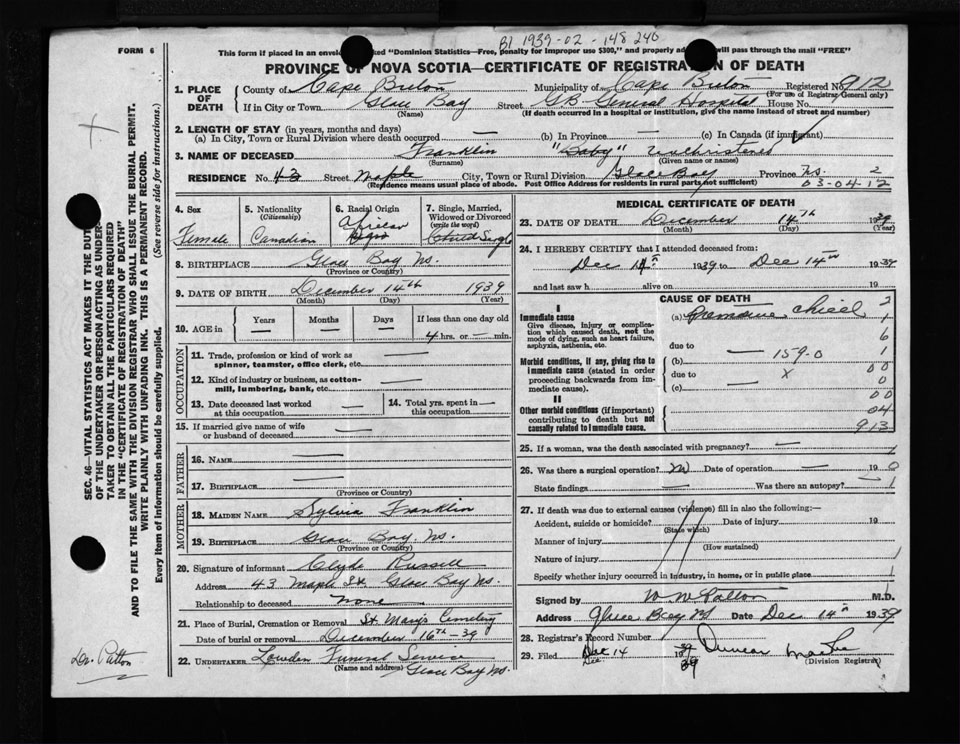 B1 1939-02-148240
FORM 6
This form if placed in an envelope marked "Dominion Statistics—Free, penalty for improper use $300," and properly addressed will pass through the mail "FREE"
PROVINCE OF NOVA SCOTIA—CERTIFICATE OF REGISTRATION OF DEATH
1. PLACE OF DEATH County of Cape Breton Municipality of Cape Breton Registered No 912
(For use of Registrar General only)
If in City or Town Glace Bay Street GB General Hospital House No.
(Name) (If death occurred in a hospital or institution, give the name instead of street and number)
2. LENGTH OF STAY (in years, months and days)
(a) In City, Town or Rural Division where death occurred — (b) In Province — (c) In Canada (if immigrant)
3. NAME OF DECEASED Franklin "Baby" unchristened
(Surname) (Given name or names)
RESIDENCE No. 43 Street Maple City, Town or Rural Division Glace Bay Province N.S. 2
(Residence means usual place of abode. Post Office Address for residents in rural parts not sufficient) 03-04-12
4. Sex Female
5. Nationality (Citizenship) Canadian
6. Racial Origin African
7. Single, Married, Widowed or Divorced (write the word) Single
8. BIRTHPLACE Glace Bay N.S.
(Province or Country)
9. DATE OF BIRTH December 14th 1939
(Month) (Day) (Year)
10. AGE in Years Months Days If less than one day old
4 hrs. or — min.
OCCUPATION
11. Trade, profession or kind of work as —
spinner, teamster, office clerk, etc.
12. Kind of industry or business, as cotton- —
mill, lumbering, bank, etc.
13. Date deceased last worked at this occupation —
14. Total yrs. spent in this occupation —
15. If married give name of wife or husband of deceased —
FATHER
16. NAME —
17. BIRTHPLACE —
(Province or Country)
MOTHER
18. MAIDEN NAME Sylvia Franklin
19. BIRTHPLACE Glace Bay, N.S.
(Province or Country)
20. Signature of informant Clyde Russell
Address 43 Maple St. Glace Bay N.S.
Relationship to deceased None
21. Place of Burial, Cremation or Removal St. Mary's Cemetery
Date of burial or removal December 16th - 39
22. UNDERTAKER Lowden Funeral Service
(Name and address) Glace Bay N.S.
MEDICAL CERTIFICATE OF DEATH
23. DATE OF DEATH December 14th 1939
(Month) (Day) (Year)
24. I HEREBY CERTIFY that I attended deceased from:
Dec 14th 1939 to Dec 14th 1939
and last saw h alive on 19
CAUSE OF DEATH
Immediate cause (a) Premature child
Give disease, injury or complication which caused death, not the mode of dying, such as heart failure, asphyxia, asthenia, etc.
due to
Morbid conditions, if any, giving rise to immediate cause (stated in order proceeding backwards from immediate cause).
(b) — 159-0
due to X
(c) —
II
Other morbid conditions (if important) contributing to death but not causally related to immediate cause.
2
1
6
1
00
0
00
04
913
25. If a woman, was the death associated with pregnancy? —
26. Was there a surgical operation? no Date of operation — 19 0
State findings — Was there an autopsy? — 1
27. If death was due to external causes (violence) fill in also the following:—
Accident, suicide or homicide? Date of injury 19
(State which)
Manner of injury
(How sustained)
Nature of injury 1
Specify whether injury occurred in industry, in home, or in public place 1
Signed by W. W. Patton M.D.
Address Glace Bay NS Date Dec 14th 1939
28. Registrar's Record Number
29. Filed Dec 14 1939 Duncan
Dec 39 (Division Registrar)
SEC. 46—VITAL STATISTICS ACT MAKES IT THE DUTY
OF THE UNDERTAKER OR PERSON ACTING AS UNDERTAKER
TO OBTAIN ALL THE PARTICULARS REQUIRED
IN THE "CERTIFICATE OF REGISTRATION OF DEATH"
AND TO FILE THE SAME WITH THE DIVISION REGISTRAR WHO SHALL ISSUE THE BURIAL PERMIT.
WRITE PLAINLY WITH UNFADING INK. THIS IS A PERMANENT RECORD.
Every item of information should be carefully supplied. (See reverse side for instructions.)
Dr. Patton